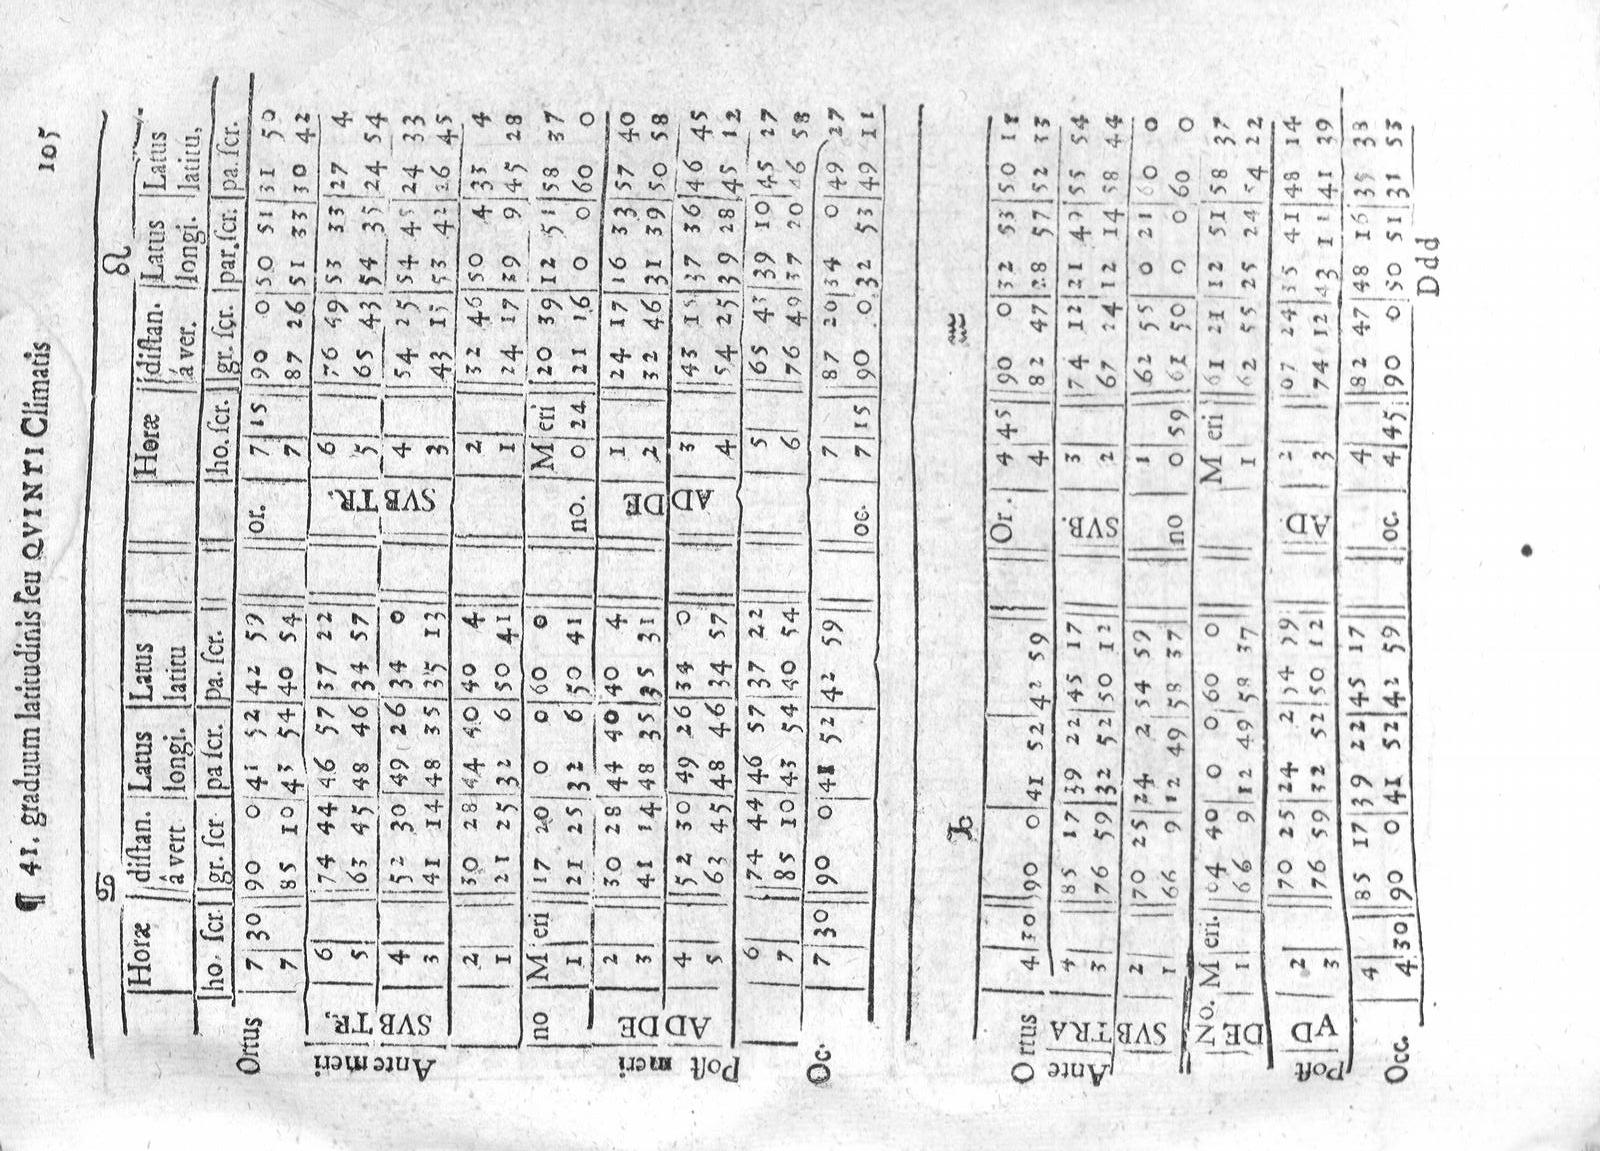 ¶ 41. graduum latitudinis ſeu QVINTI Climatis 105
♋ ♌
Horæ diſtan. Latus Latus Horæ diſtan. Latus Latus
â vert longi. latitu á ver. longi. latitu,
ho. ſcr gr. ſcr pa ſcr. pa. ſcr. ho. ſcr. gr. ſcr. par. ſcr. pa. ſcr.
Ortus 7 30 90 0 41 52 42 59 or. 7 15 90 0 50 51 31 50
7 85 10 43 54 40 54 7 87 26 51 33 30 42
Ante meri SVBTR, 6 74 44 46 57 37 22 SVBTR. 6 76 49 53 33 27 4
5 63 45 48 46 34 57 5 65 43 54 35 24 54
4 52 30 49 26 34 0 4 54 25 54 45 24 33
3 41 14 48 35 35 13 3 43 15 53 42 26 45
2 30 28 44 40 40 4 2 32 46 50 4 33 4
1 21 25 32 6 50 41 1 24 17 39 9 45 28
no Meri 17 20 0 0 60 0 Meri 20 39 12 51 58 37
1 21 25 32 6 50 41 no. 0 24 21 16 0 0 60 0
Poſt meri ADDE 2 30 28 44 40 40 4 ADDE 1 24 17 16 33 57 40
3 41 14 48 35 35 31 2 32 46 31 39 50 58
4 52 30 49 26 34 0 ADDE 3 43 15 37 36 46 45
5 63 45 48 46 34 57 4 54 25 39 28 45 12
6 74 44 46 57 37 22 5 65 43 39 10 45 27
7 85 10 43 54 40 54 6 76 49 37 20 46 58
Oc. 7 30 90 0 41 52 42 59 7 87 20 34 0 49 27
oc. 7 15 90 0 32 53 49 11
♎ ♏
Ortus 4 30 90 0 41 52 42 59 Or. 4 45 90 0 32 53 50 18
Ante SVBTRA 4 85 17 39 22 45 17 4 82 47 28 57 52 33
3 76 59 32 52 50 12 SVB. 3 74 12 21 49 55 54
2 70 25 24 2 54 59 2 67 24 12 14 58 44
1 66 9 12 49 58 37 1 62 55 0 21 60 0
No. Meri. 64 40 0 0 60 0 no 0 59 61 50 0 0 60 0
DE 1 66 9 12 49 58 37 Meri 61 21 12 51 58 37
1 62 55 25 24 54 22
Poſt AD 2 70 25 24 2 54 59 AD 2 67 24 35 41 48 14
3 76 59 32 52 50 12 3 74 12 43 11 41 39
4 85 17 39 22 45 17 4 82 47 48 16 35 33
Occ. 4 30 90 0 41 52 42 59 oc. 4 45 90 0 50 51 31 53
Ddd